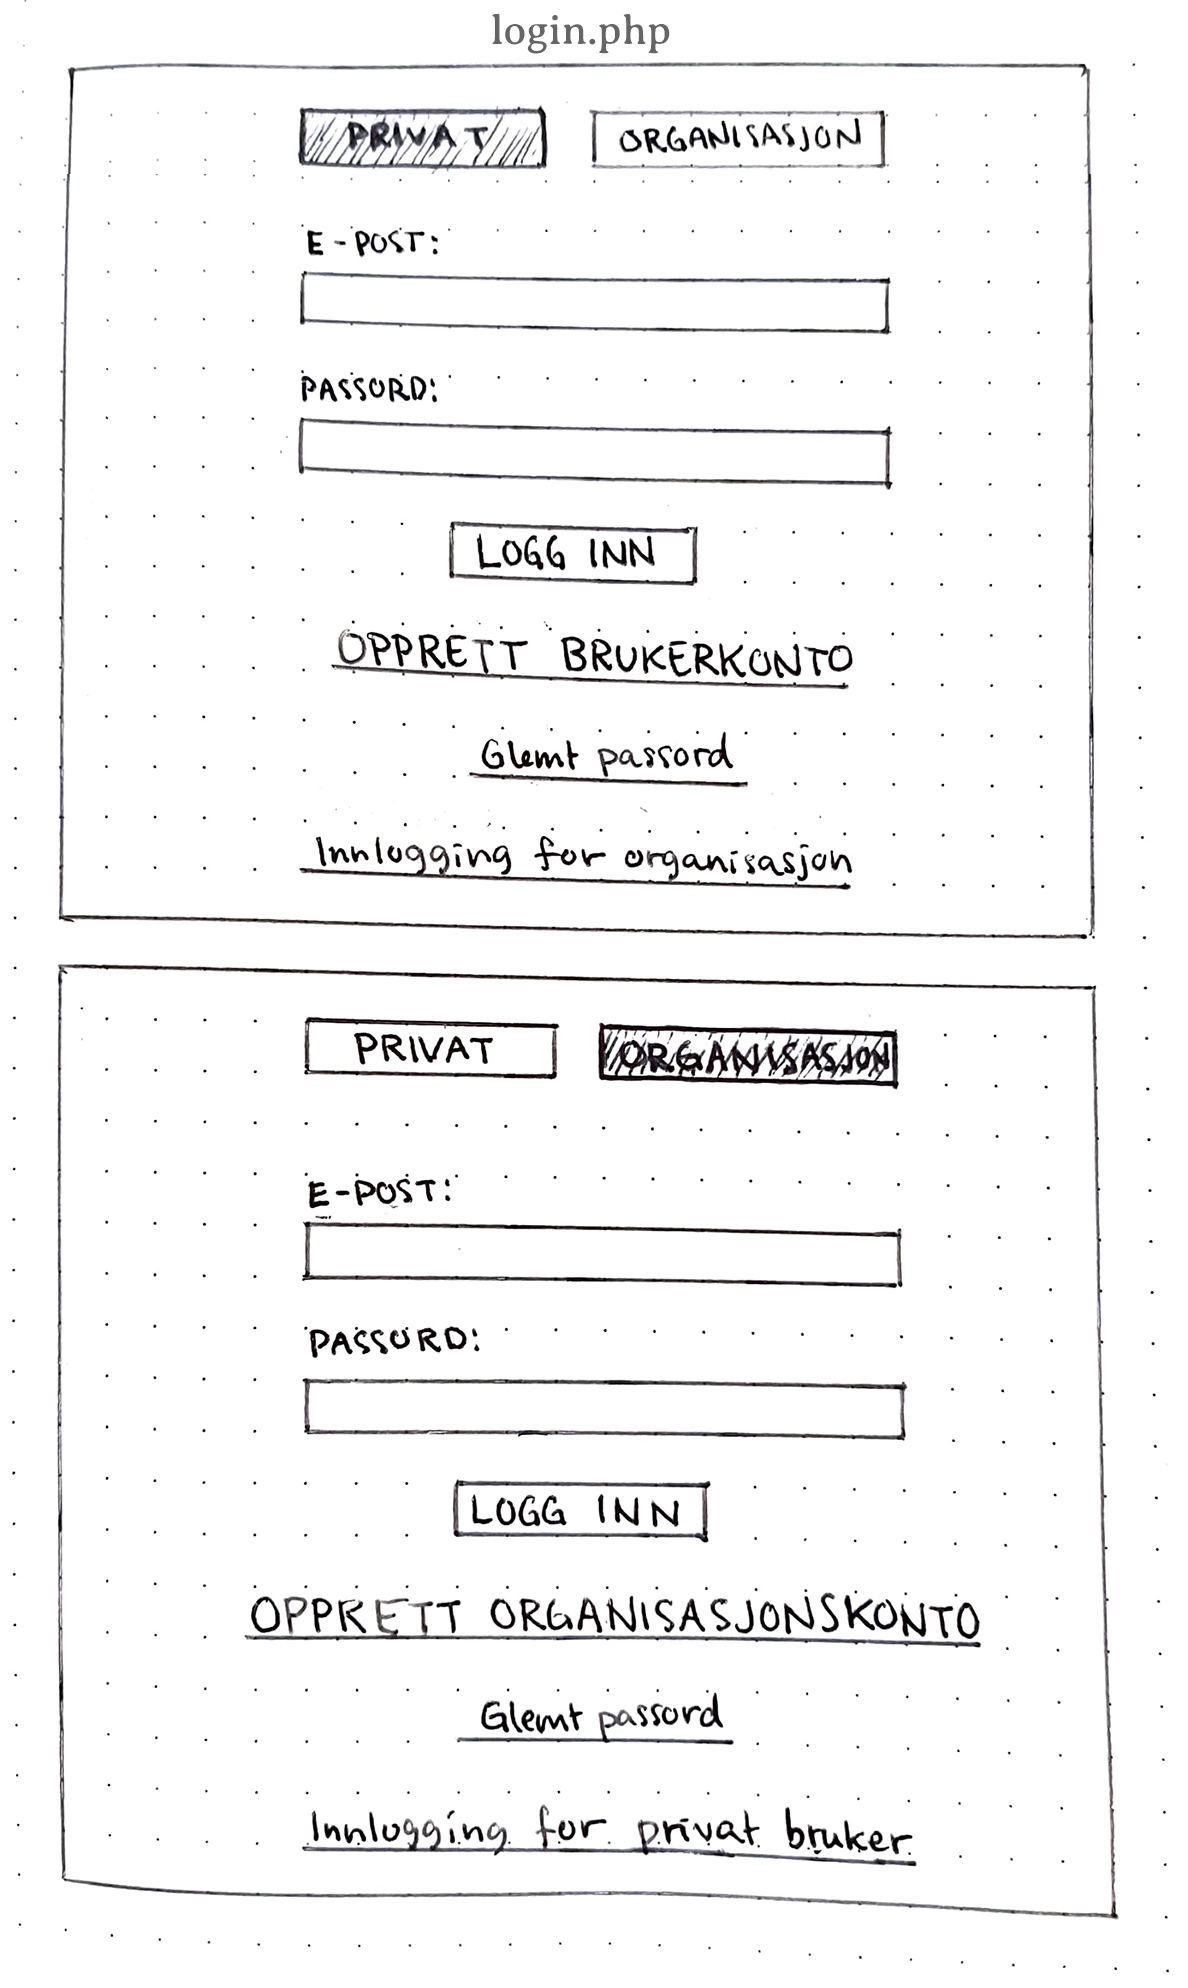 login.php
PRIVAT ORGANISASJON
E-POST:
PASSORD:
LOGG INN
OPPRETT BRUKERKONTO
Glemt passord
Innlogging for organisasjon
PRIVAT ORGANISASJON
E-POST:
PASSORD:
LOGG INN
OPPRETT ORGANISASJONSKONTO
Glemt passord
Innlogging for privat bruker